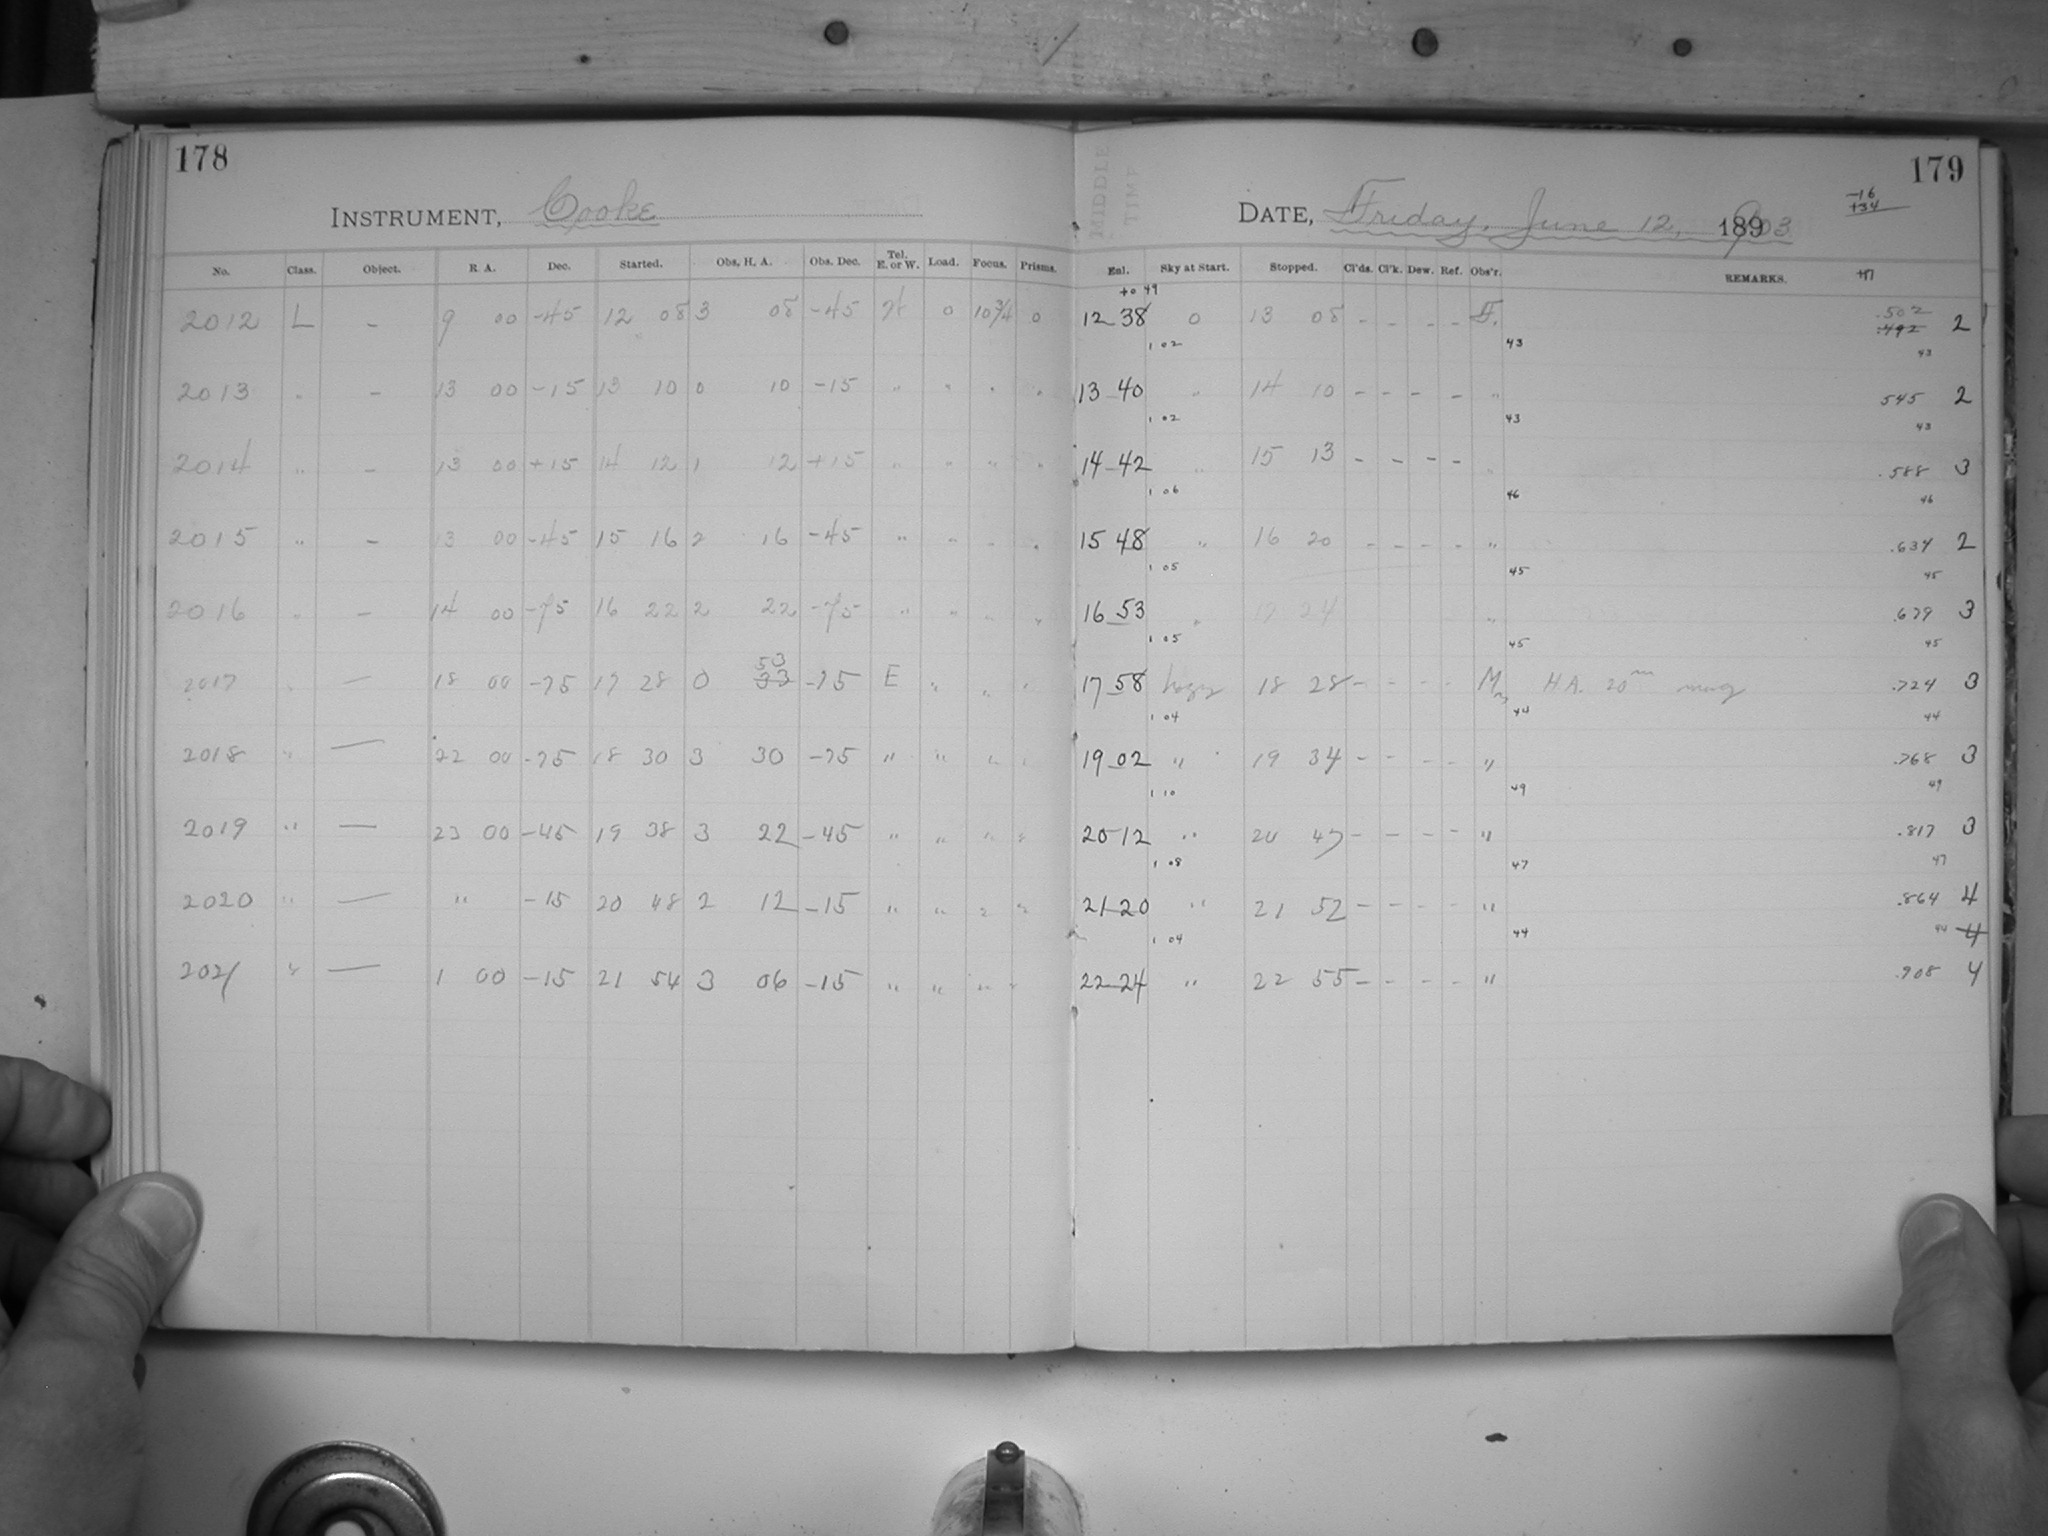 178
INSTRUMENT, Cooke
No. Class. Object. R. A. Dec. Started. Obs. H. A. Obs. Dec. Tel. E. or W. Load. Focus. Prisms.
2012 L - 9 00 -45 12 08 3 08 -45 0 10 3/4 0
2013 " - 13 00 -15 13 10 0 10 -15 " " " "
2014 " - 13 00 +15 14 12 1 12 +15 " " " "
2015 " - 13 00 -45 15 16 2 16 -45 " " " "
2016 " - 14 00 -75 16 22 2 22 -75 " " " "
53
2017 " - 18 00 -75 17 28 0 33 -75 E " " "
2018 " - 22 00 -75 18 30 3 30 -75 " " " "
2019 " - 23 00 -45 19 38 3 22 -45 " " " "
2020 " - " -15 20 48 2 12 -15 " " " "
2021 " - 1 00 -15 21 54 3 06 -15 " " " "
179
MIDDLE
TIME
-16
+34
DATE, Friday, June 12, 1903
Enl. Sky at Start. Stopped. Cl'ds. Cl'k. Dew. Ref. Obs'r. REMARKS. +17
+0 49
.502
12 38 0 13 08 - - - - F. .492 2
1 02 43 43
13 40 " 14 10 - - - - " 545 2
1 02 43 43
14 42 " 15 13 - - - - " .588 3
1 06 46 46
15 48 " 16 20 - - - - " .634 2
1 05 45 45
16 53 " 17 24 " .679 3
1 05 45 45
17 58 hazy 18 28 - - - - M H.A. 20m .724 3
1 04 44 44
19 02 " 19 34 - - - - " .768 3
1 10 49 49
20 12 " 20 47 - - - - " .817 3
1 08 47 47
21 20 " 21 52 - - - - " .864 4
1 04 44 44 4
22 24 " 22 55 - - - - " .908 4